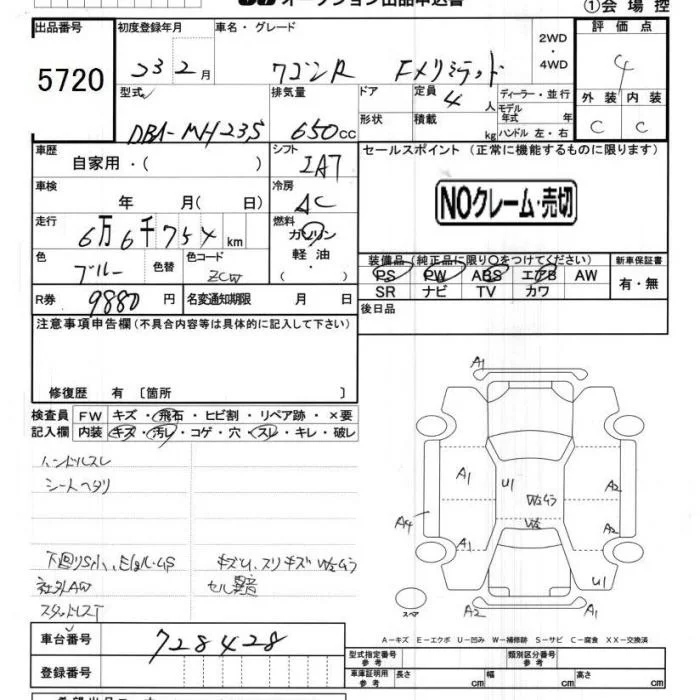 オークション出品申込書
①会場控
出品番号
5720
初度登録年月
23 2月
車名・グレード
ワゴンR FXリミテッド
2WD
・
4WD
評価点
4
外装 内装
C C
型式
DBA-MH23S
排気量
650cc
ドア
形状
定員
4人
積載
kg
ディーラー・並行
モデル年式 年
ハンドル 左・右
車歴
自家用・( )
シフト
IAT
セールスポイント (正常に機能するものに限ります)
NOクレーム・売切
車検
年 月( 日)
冷房
AC
走行
6万6千754km
燃料
ガソリン
軽油・
( )
色
ブルー
色替
色コード
ZCW
装備品 (純正品に限り○をつけてください)
PS PW ABS エアB AW
SR ナビ TV カワ
新車保証書
有・無
R券
9880円
名変通知期限 月 日
後日品
注意事項申告欄(不具合内容等は具体的に記入して下さい)
修復歴 有 〔箇所 〕
検査員
記入欄
FW キズ・飛石・ヒビ割・リペア跡・×要
内装 キズ・汚レ・コゲ・穴・スレ・キレ・破レ
ハンドルスレ
シートヘタリ
下回りS小、
キズU、スリキズ
社外AW
セル異音
スタッドレスT
A1
A1
U1
A2
A4
W2
A1
A2
U1
スペア
A2
A1
A-キズ E-エクボ U-凹み W-補修跡 S-サビ C-腐食 XX-交換済
車台番号
728428
登録番号
型式指定番号
参考
類別区分番号
参考
車庫証明用
参考
長さ cm
幅 cm
高さ cm